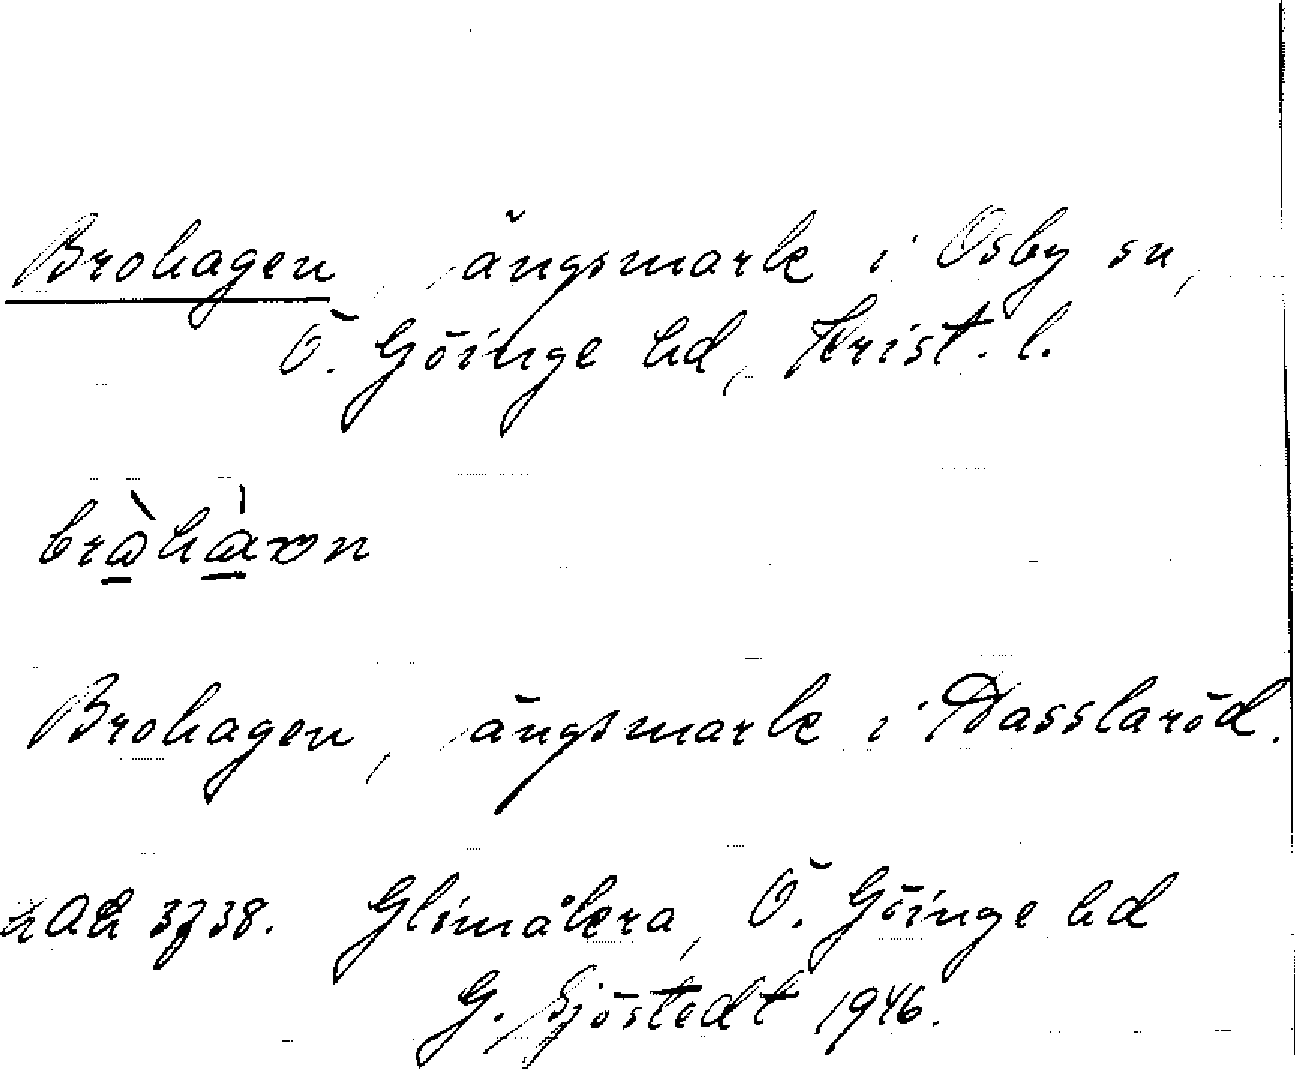 Brohagen, ängsmark i Osby sn,
Ö. Göinge hd, Krist. l.
Brohagen, ängsmark i Dasslaröd.
LAL 3738. Glimåkra, Ö. Göinge hd
G. Sjöstedt 1946.